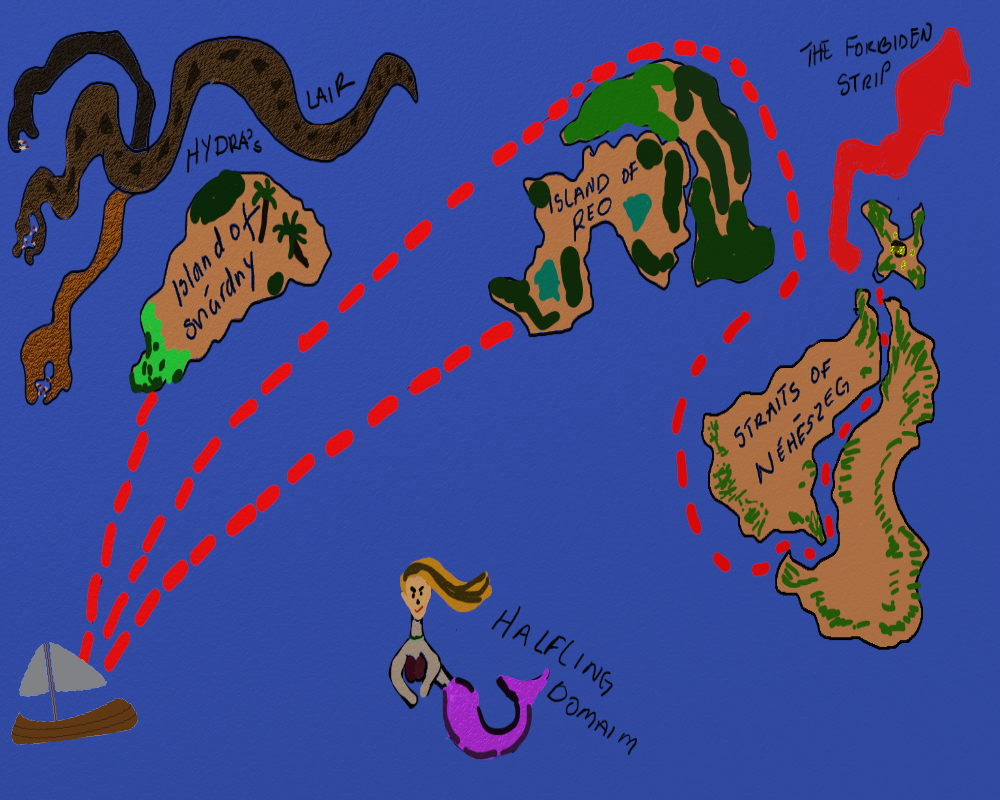 HYDRA'S LAIR
Island of
snúrdny
ISLAND OF
REO
THE FORBIDEN
STRIP
STRAITS OF
NÉHÉSZEG
HALFLING
DOMAIM